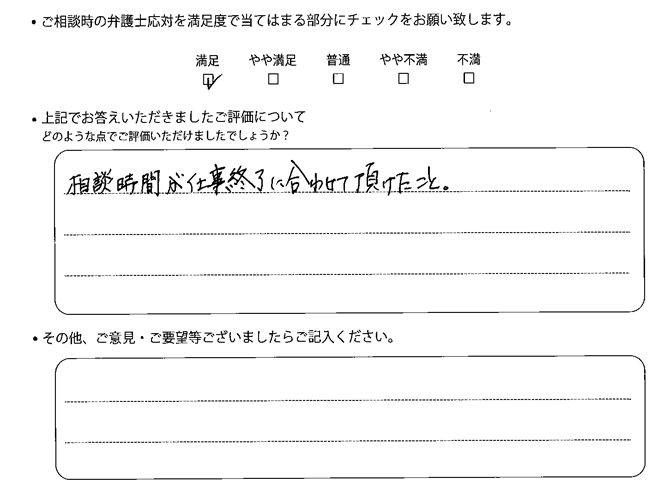 ・ご相談時の弁護士応対を満足度で当てはまる部分にチェックをお願い致します。
満足 やや満足 普通 やや不満 不満
・上記でお答えいただきましたご評価について
どのような点でご評価いただけましたでしょうか？
相談時間が仕事終了に合わせて頂けたこと。
・その他、ご意見・ご要望等ございましたらご記入ください。